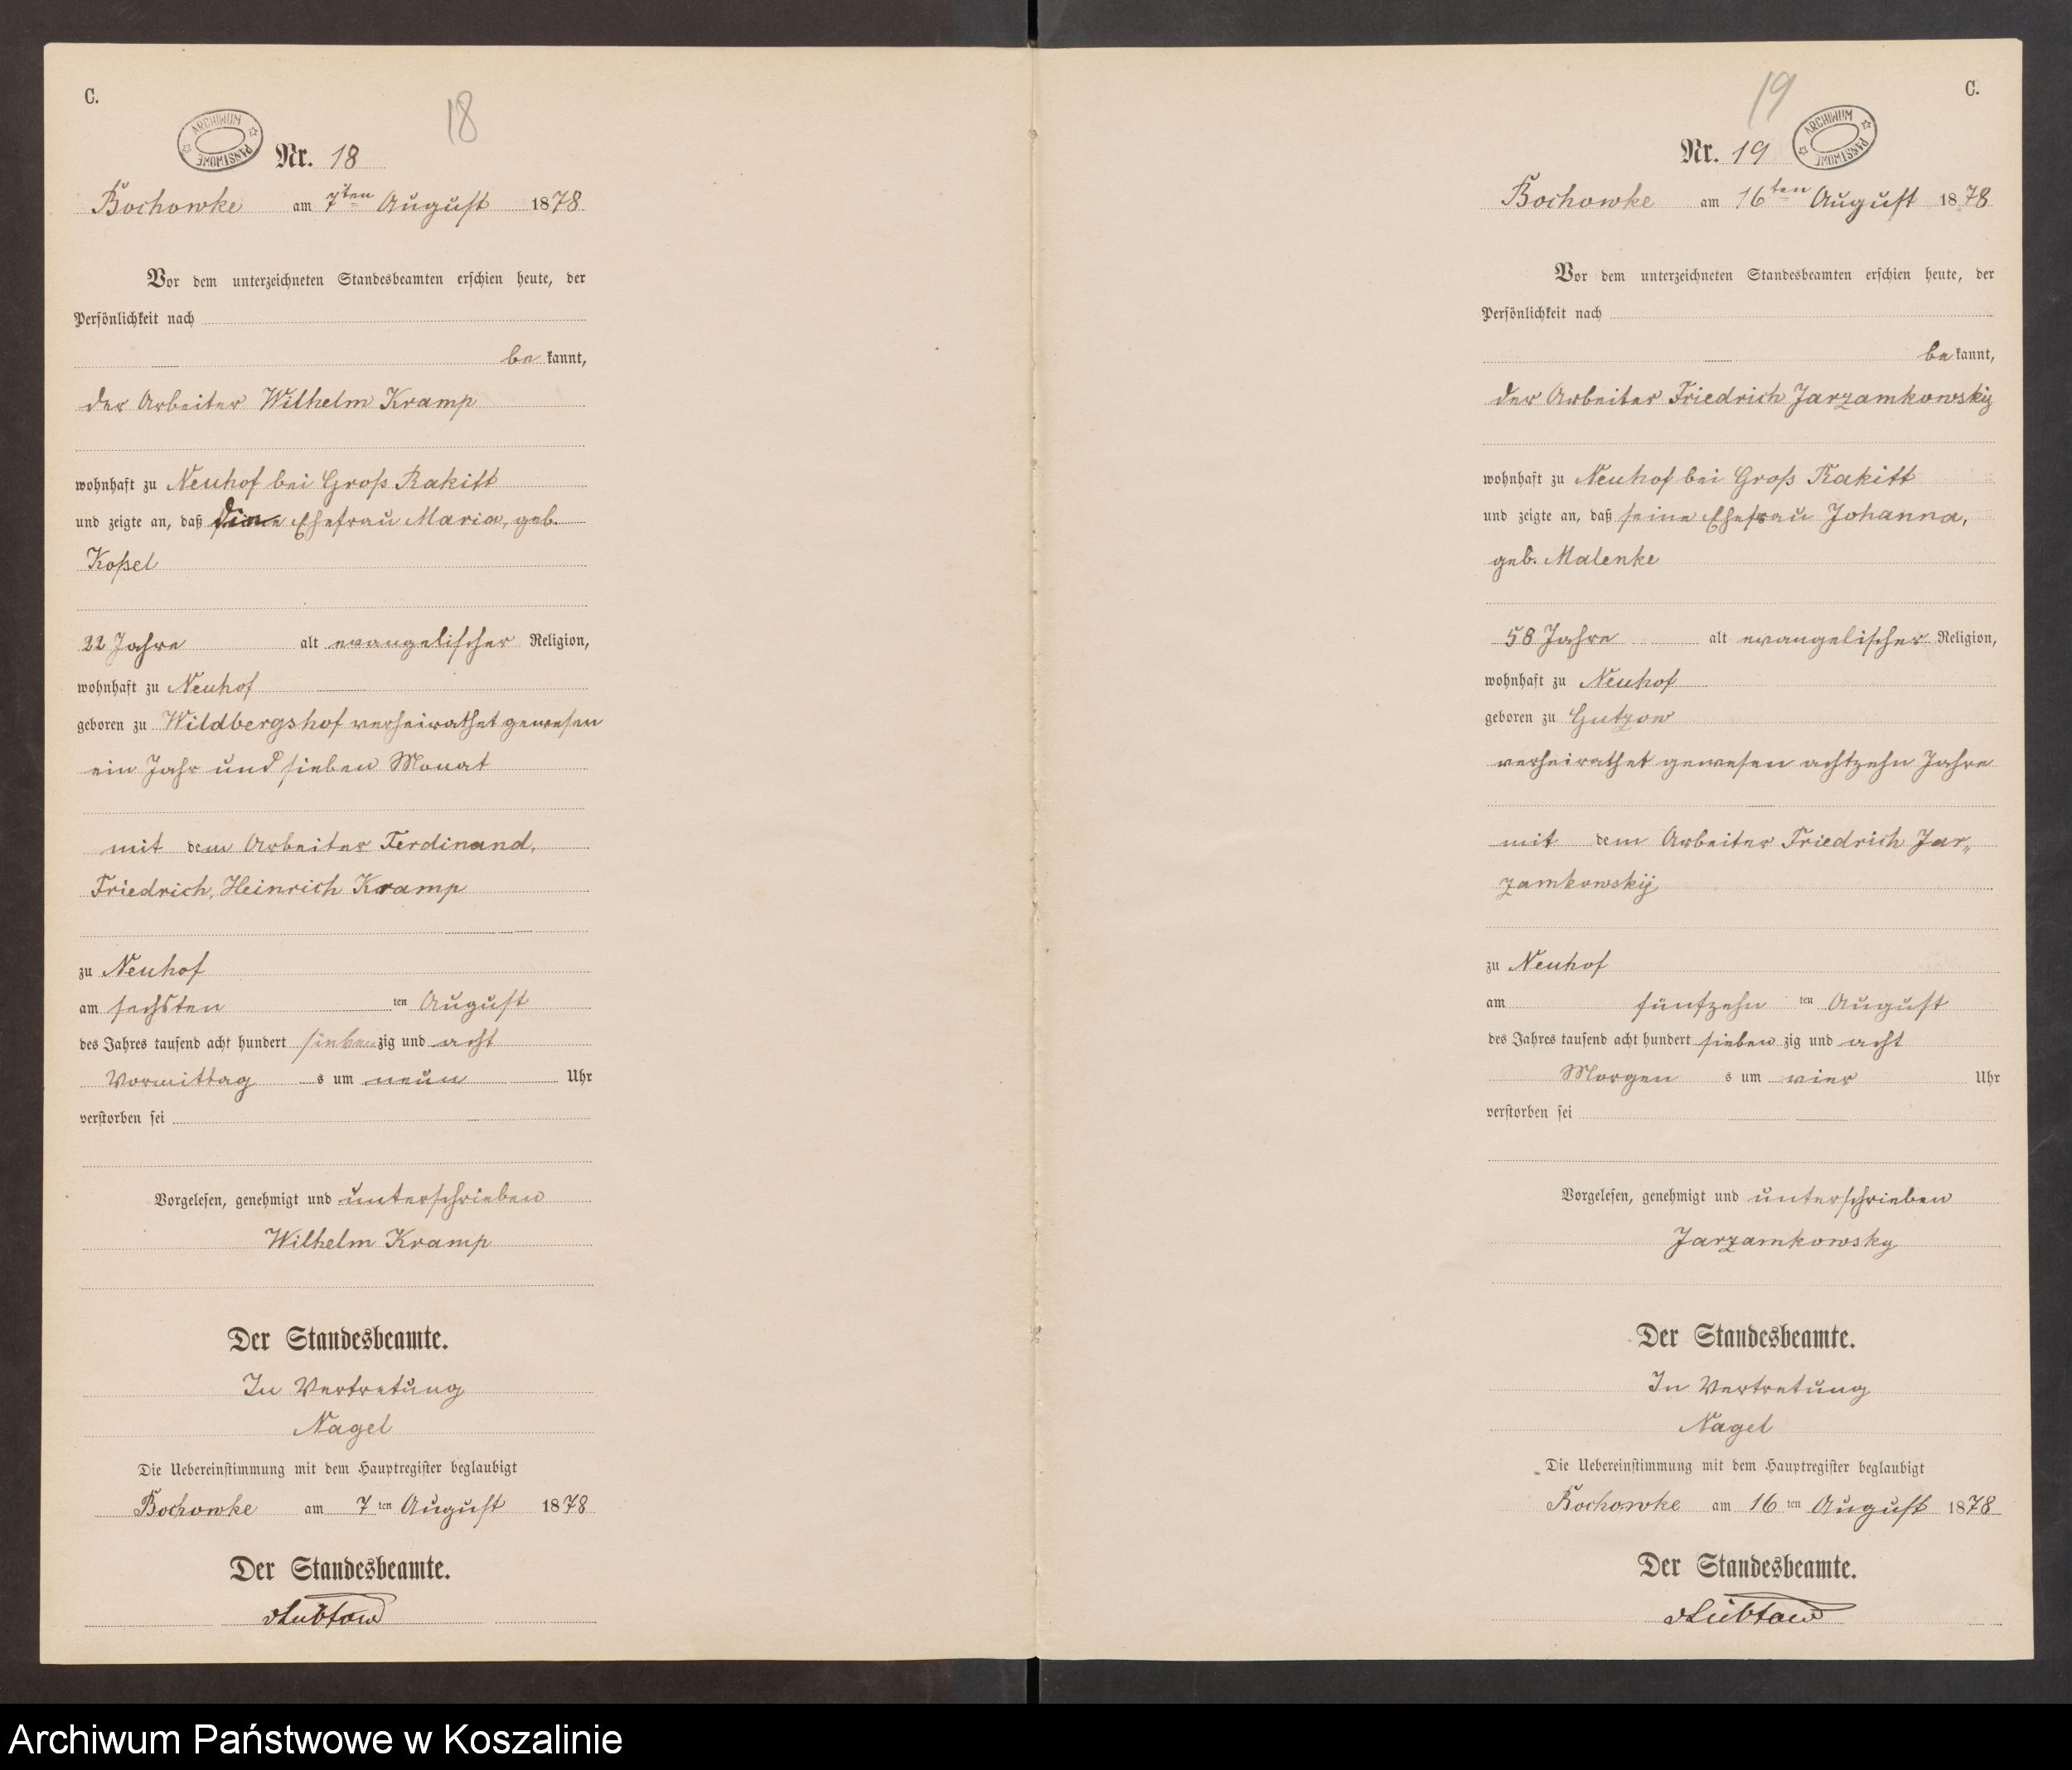 C.
18
ARCHIWUM PAŃSTWOWE
Nr. 18
Bochowke am 7ten August 1878
Vor dem unterzeichneten Standesbeamten erschien heute, der
Persönlichkeit nach
be kannt,
der Arbeiter Wilhelm Kramp
wohnhaft zu Neuhof bei Groß Rakitt
und zeigte an, daß die Ehefrau Maria, geb.
Koßel
22 Jahre alt evangelischer Religion,
wohnhaft zu Neuhof
geboren zu Wildbergshof verheirathet gewesen
ein Jahr und sieben Monat
mit dem Arbeiter Ferdinand,
Friedrich, Heinrich Kramp
zu Neuhof
am sechsten ten August
des Jahres tausend acht hundert sieben zig und acht
Vormittag s um neun Uhr
verstorben sei
Vorgelesen, genehmigt und unterschrieben
Wilhelm Kramp
Der Standesbeamte.
In Vertretung
Nagel
Die Uebereinstimmung mit dem Hauptregister beglaubigt
Bochowke am 7 ten August 1878
Der Standesbeamte.
vLübtow
19
C.
Nr. 19
ARCHIWUM PAŃSTWOWE
Bochowke am 16ten August 1878
Vor dem unterzeichneten Standesbeamten erschien heute, der
Persönlichkeit nach
be kannt,
der Arbeiter Friedrich Jarzamkowsky
wohnhaft zu Neuhof bei Groß Rakitt
und zeigte an, daß seine Ehefrau Johanna,
geb. Malenke
58 Jahre alt evangelischer Religion,
wohnhaft zu Neuhof
geboren zu Gutzow
verheirathet gewesen achtzehn Jahre
mit dem Arbeiter Friedrich Jar„
zamkowsky
zu Neuhof
am fünfzehn ten August
des Jahres tausend acht hundert sieben zig und acht
Morgen s um vier Uhr
verstorben sei
Vorgelesen, genehmigt und unterschrieben
Jarzamkowsky
Der Standesbeamte.
In Vertretung
Nagel
Die Uebereinstimmung mit dem Hauptregister beglaubigt
Bochowke am 16 ten August 1878
Der Standesbeamte.
vLübtow
Archiwum Państwowe w Koszalinie